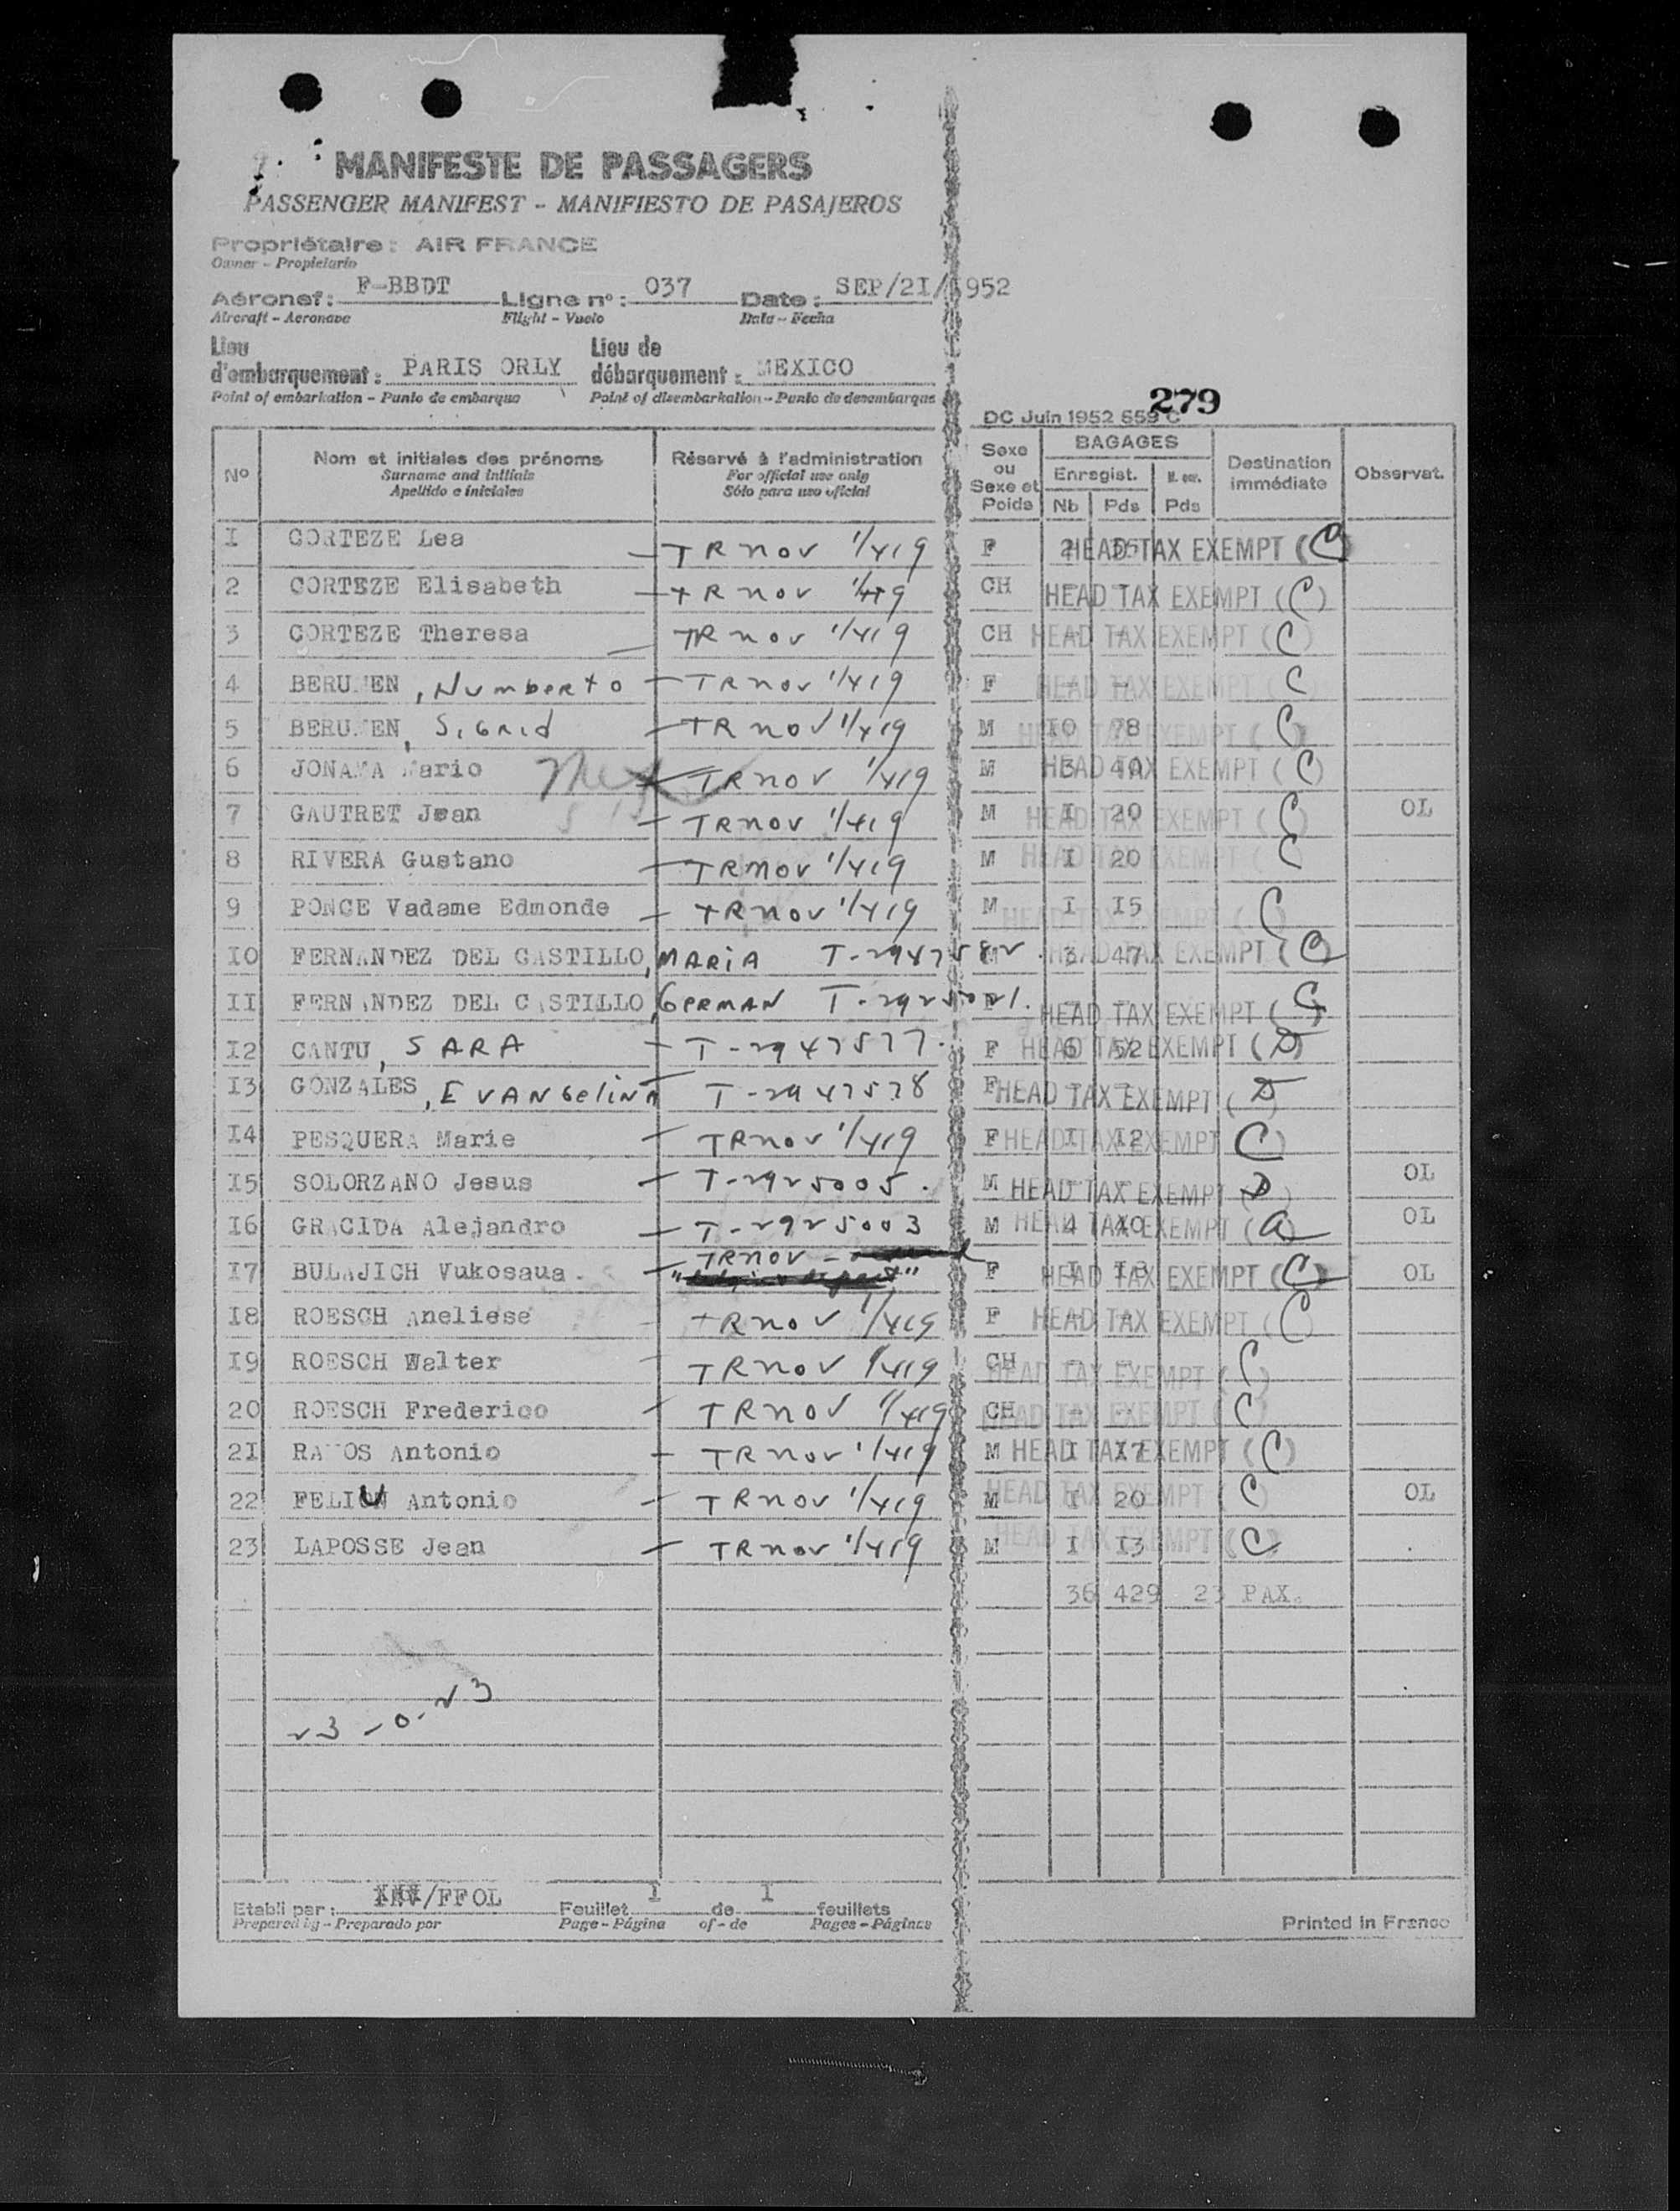 MANIFESTE DE PASSAGERS
PASSENGER MANIFEST - MANIFIESTO DE PASAJEROS
Propriétaire : AIR FRANCE
Owner - Propietario
Aéronef : F-BBDT Ligne n° : 037 Date : SEP/2I/1952
Aircraft - Aeronave Flight - Vuelo Date - Fecha
Lieu d'embarquement : PARIS ORLY Lieu de débarquement : MEXICO
Point of embarkation - Punto de embarque Point of disembarkation - Punto de desembarque
279
DC Juin 1952 659 C
N° Nom et initiales des prénoms Réservé à l'administration Sexe ou Sexe et Poids BAGAGES Destination immédiate Observat.
Surname and initials For official use only Enregist.
Apellido e iniciales Sólo para uso oficial Nb Pds Pds
I CORTEZE Lea - TR nov 1/419 F 2 HEAD TAX EXEMPT (C)
2 CORTEZE Elisabeth - TR nov 1/419 CH HEAD TAX EXEMPT (C)
3 CORTEZE Theresa - TR nov 1/419 CH HEAD TAX EXEMPT (C)
4 BERUMEN, Humberto - TR nov 1/419 F HEAD TAX EXEMPT (C)
5 BERUMEN, SiGrid - TR nov 1/419 M IO 78 HEAD TAX EXEMPT (C)
6 Mario - TR nov 1/419 M 3 40 HEAD TAX EXEMPT (C)
7 GAUTRET Jean - TR nov 1/419 M I 20 HEAD TAX EXEMPT (C) OL
8 RIVERA Gustano - TR nov 1/419 M I 20 HEAD TAX EXEMPT (C)
9 PONCE Vadame Edmonde - TR nov 1/419 M I I5 HEAD TAX EXEMPT (C)
IO FERNANDEZ DEL CASTILLO, MARIA T-2947582 M 3 47 HEAD TAX EXEMPT (C)
II FERNANDEZ DEL CASTILLO, GERMAN T-2925021. F HEAD TAX EXEMPT (C)
I2 CANTU, SARA - T-2947577. F 6 52 HEAD TAX EXEMPT (D)
I3 GONZALES, EVANGelina T-2947578 F HEAD TAX EXEMPT (D)
I4 PESQUERA Marie - TR nov 1/419 F I I2 HEAD TAX EXEMPT (C)
I5 SOLORZANO Jesus - T-2925005. M HEAD TAX EXEMPT (D) OL
I6 GRACIDA Alejandro - T-2925003 M 4 40 HEAD TAX EXEMPT (a) OL
I7 BULAJICH Vukosaua. - TR nov - F I HEAD TAX EXEMPT (C) OL
I8 ROESCH Aneliese TR nov 1/419 F HEAD TAX EXEMPT (C)
I9 ROESCH Walter - TR nov 1/419 CH HEAD TAX EXEMPT (C)
20 ROESCH Frederico - TR nov 1/419 CH HEAD TAX EXEMPT (C)
2I RAMOS Antonio - TR nov 1/419 M I I7 HEAD TAX EXEMPT (C)
22 FELIU Antonio - TR nov 1/419 M I 20 HEAD TAX EXEMPT (C) OL
23 LAPOSSE Jean - TR nov 1/419 M I I3 HEAD TAX EXEMPT (C)
36 429 23 PAX.
23 - 0 - 23
Etabli par : /FFOL Feuillet 1 de 1 feuillets
Prepared by - Preparado por Page - Página of - de Pages - Páginas
Printed in France